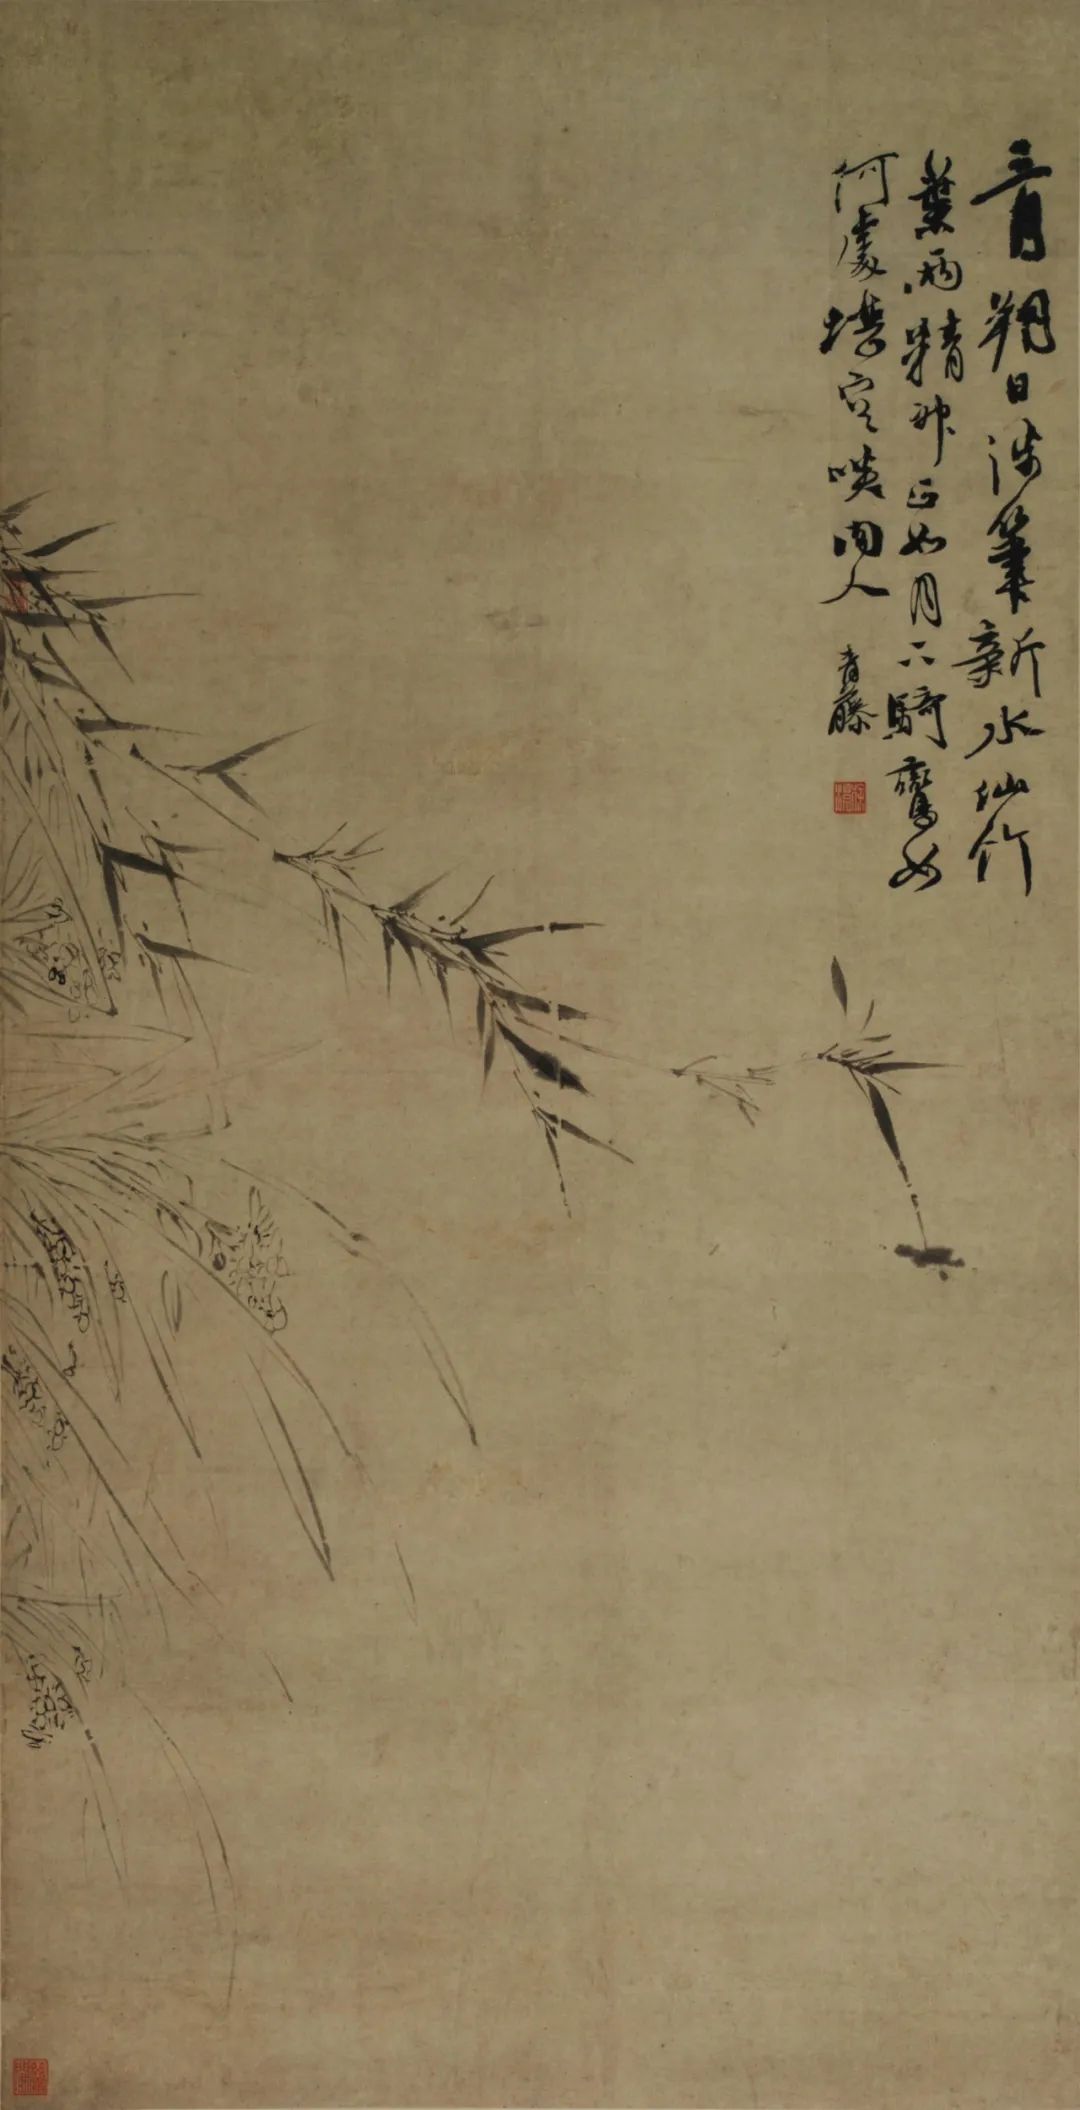 三月朔日涉筆新水仙竹
葉兩精神正如月下騎鸞女
何處堪容啖肉人 青藤